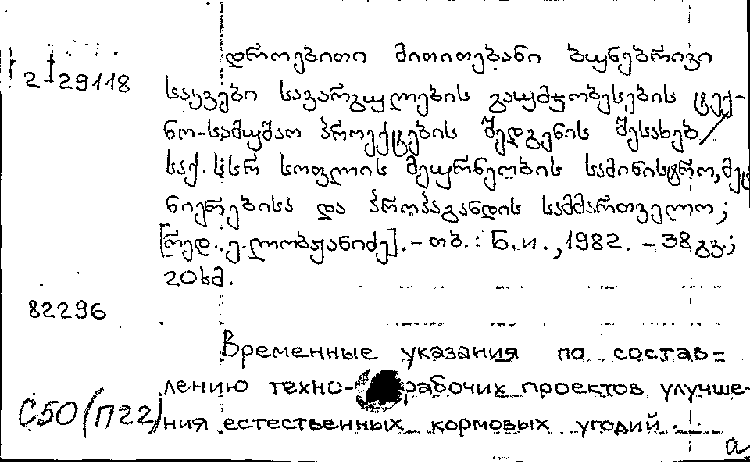 დროებითი მითითებანი ბუნებრივი
2-29118 საკვები სავარგულების გაუმჯობესების ტექ-
ნო-სამუშაო პროექტების შედგენის შესახებ/
საქ. სსრ სოფლის მეურნეობის სამინისტრო, მეც
ნიერებისა და პროპაგანდის სამმართველო;
[რედ. ე. ლობჟანიძე]. - თბ. : Б. и., 1982. - 38 გვ.;
20 სმ.
82296
Временные указания по состав-
лению техно- рабочих проектов улучше-
С50(П22) ния естественных кормовых угодий.
а